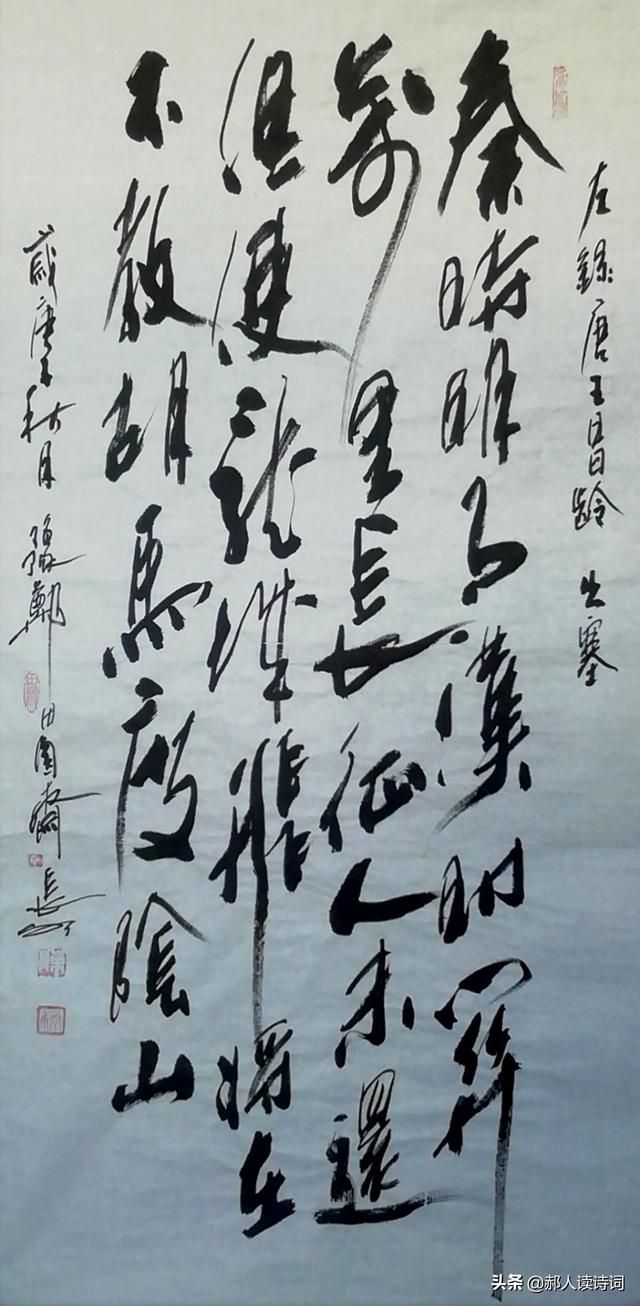 左錄唐王昌齡 出塞
秦時明月漢時關
萬里長征人未還
但使龍城飛將在
不教胡馬度陰山
歲庚子秋月 豫鄭 田園齋
头条 @郝人读诗词